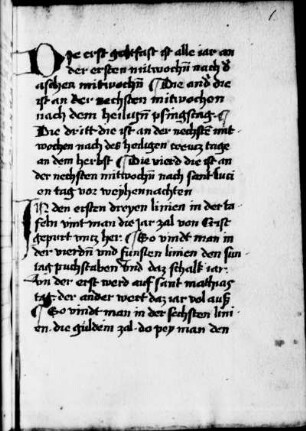 1.
Die erst goltfast ist alle iar an
der ersten mitwochn nach d
aschen mitwochn ¶ Die and die
ist an der nechsten mitwochen
nach dem heilign pfingstag ¶
Die dritt die ist an der nechstn mit
wochen nach des heiligen creutz tage
an dem herbst ¶ Die vierd die ist an
der nechsten mitwochn nach sant luci
en tag vor weyhennachten
In den ersten dreyen linien in der ta
feln vint man die iar zal von Crist
gepurt vntz her. ¶ So vindt man in
der vierdn vnd funften linien den sun
tag puchstaben vnd daz schalt iar.
In der erst werd auf sant mathias
tag der ander wert daz iar vol auß
¶ So vindt man in der sechsten lini
en. die guldem zal. do pey man den